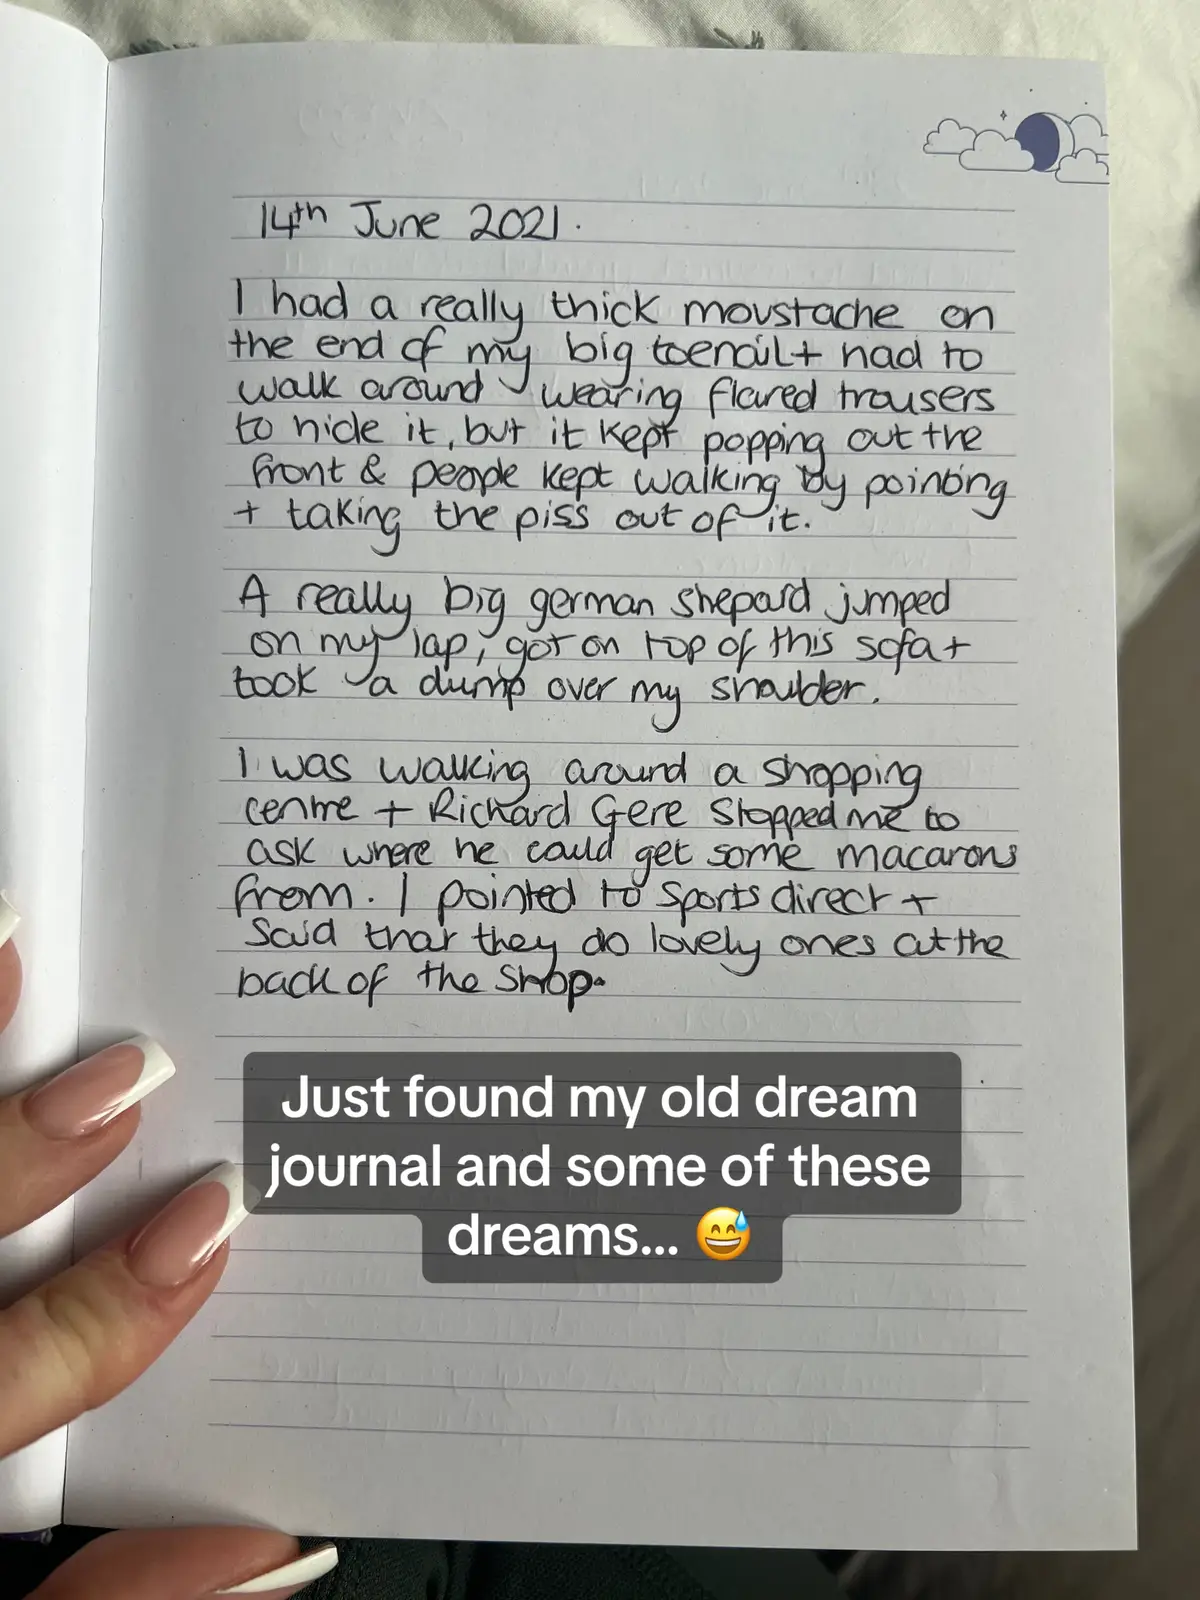 14th June 2021.
I had a really thick moustache on
the end of my big toenail + had to
walk around wearing flared trousers
to hide it, but it kept popping out the
front & people kept walking by pointing
+ taking the piss out of it.
A really big german shepard jumped
on my lap, got on top of this sofa +
took a dump over my shoulder.
I was walking around a shopping
centre + Richard Gere stopped me to
ask where he could get some macarons
from. I pointed to Sports direct +
said that they do lovely ones at the
back of the shop.
Just found my old dream
journal and some of these
dreams... 😅